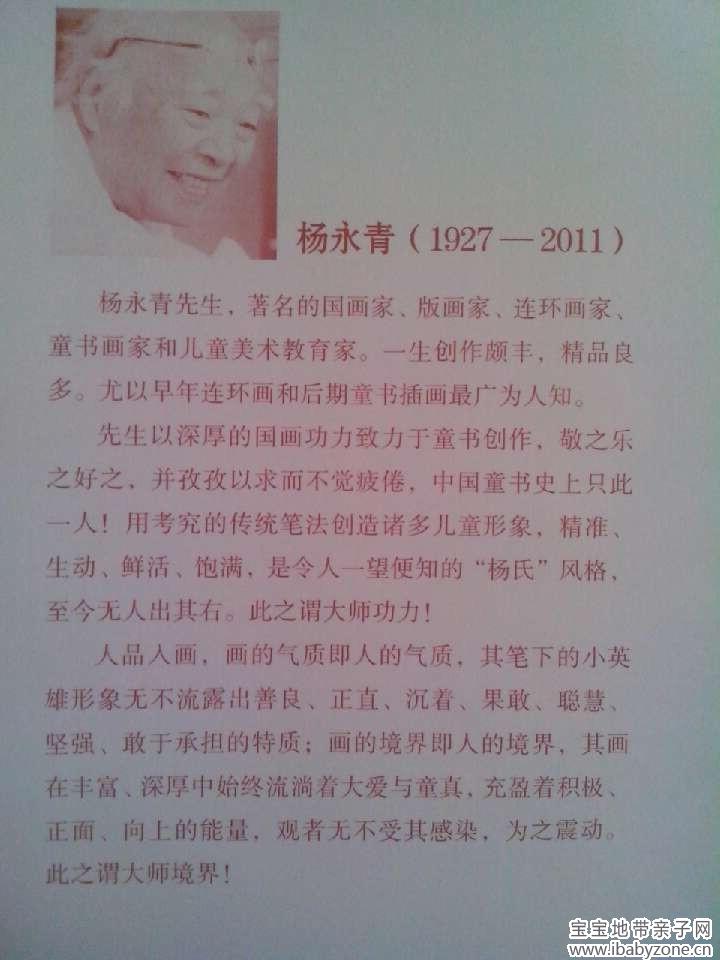 杨永青（1927—2011）
杨永青先生，著名的国画家、版画家、连环画家、
童书画家和儿童美术教育家。一生创作颇丰，精品良
多。尤以早年连环画和后期童书插画最广为人知。
先生以深厚的国画功力致力于童书创作，敬之乐
之好之，并孜孜以求而不觉疲倦，中国童书史上只此
一人！用考究的传统笔法创造诸多儿童形象，精准、
生动、鲜活、饱满，是令人一望便知的“杨氏”风格，
至今无人出其右。此之谓大师功力！
人品入画，画的气质即人的气质，其笔下的小英
雄形象无不流露出善良、正直、沉着、果敢、聪慧、
坚强、敢于承担的特质；画的境界即人的境界，其画
在丰富、深厚中始终流淌着大爱与童真，充盈着积极、
正面、向上的能量，观者无不受其感染，为之震动。
此之谓大师境界！
宝宝地带亲子网
www.ibabyzone.cn